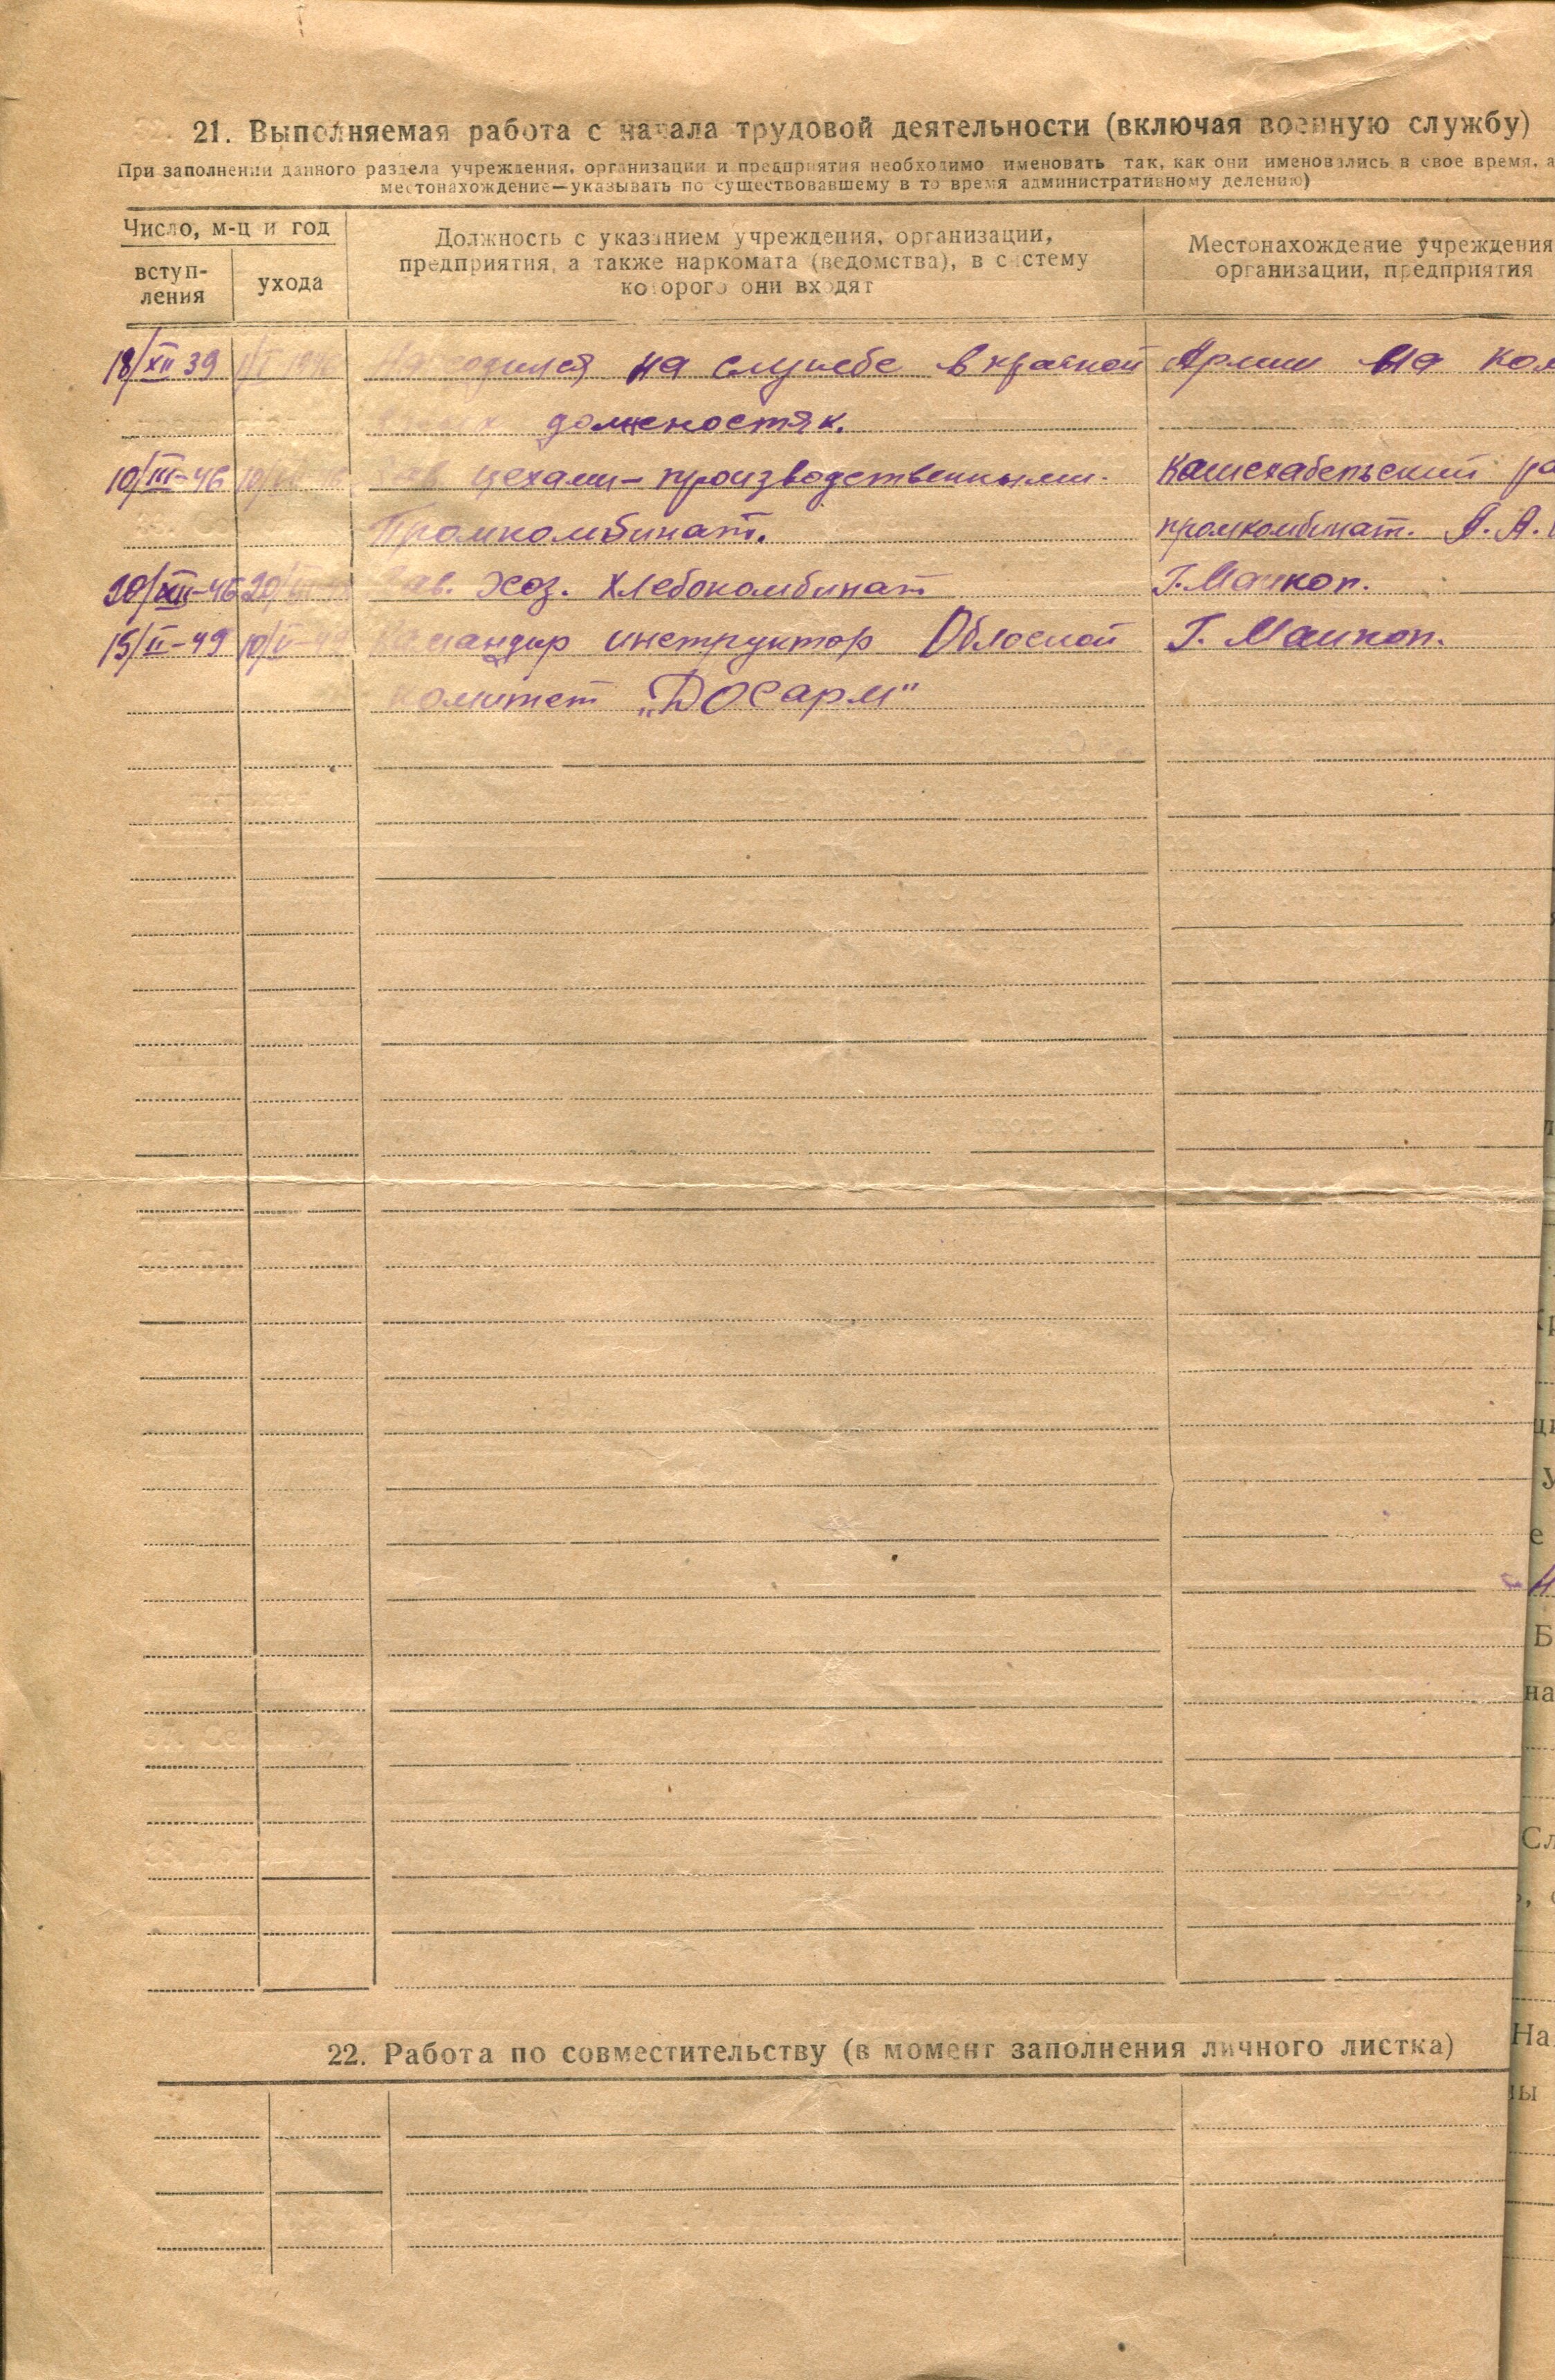 21. Выполняемая работа с начала трудовой деятельности (включая военную службу)
При заполнении данного раздела учреждения, организации и предприятия необходимо именовать так, как они именовались в свое время, а
местонахождение—указывать по существовавшему в то время административному делению)
Число, м-ц и год
вступ-
ления
ухода
Должность с указанием учреждения, организации,
предприятия, а также наркомата (ведомства), в систему
которого они входят
Местонахождение учреждения
организации, предприятия
18/XII 39 1/I 1946 Находился на службе в красной Армии на ком
должностях.
10/III-46 Зав цехами-производственными. Кошехабельский ра
Промкомбинат. промкомбинат. А. А.
20/XII-46 Зав. Хоз. Хлебокомбинат Г. Маикоп.
15/II-49 10/V-49 Командир инструктор Облосной Г. Маикоп.
комитет „ДОСарм"
22. Работа по совместительству (в момент заполнения личного листка)